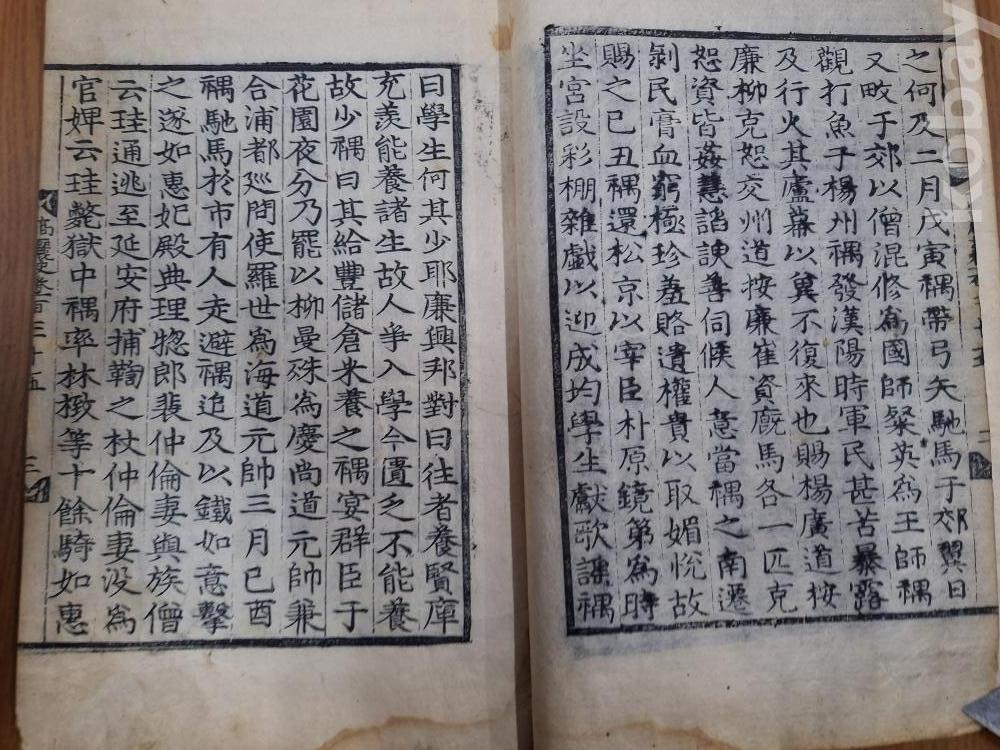 之何及二月戊寅禑帶弓矢馳馬于郊翼日
又畋于郊以僧混修爲國師粲英爲王師禑
觀打魚于楊州禑發漢陽時軍民甚苦暴露
及行火其廬幕以冀不復來也賜楊廣道按
廉柳克恕交州道按廉崔資廐馬各一匹克
恕資皆姦慧諂諛善伺候人意當禑之南遷
剝民膏血窮極珍羞賂遺權貴以取媚悅故
賜之己丑禑還松京以宰臣朴原鏡第爲時
坐宮設彩棚雜戱以迎成均學生獻歌謠禑
曰學生何其少耶廉興邦對曰往者養賢庫
充羨能養諸生故人爭入學今匱乏不能養
故少禑曰其給豐儲倉米養之禑宴群臣于
花園夜分乃罷以柳曼殊爲慶尙道元帥兼
合浦都廵問使羅世爲海道元帥三月己酉
禑馳馬於市有人走避禑追及以鐵如意擊
之遂如惠妃殿典理惣郎裴仲倫妻與族僧
云珪通逃至延安府捕鞫之杖仲倫妻没爲
官婢云珪斃獄中禑率林㮹等十餘騎如惠
高麗史卷一百三十五
三
kobay